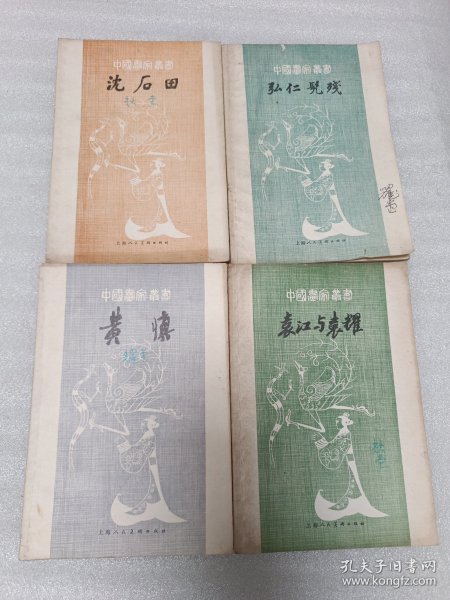 中國畫家叢書
沈石田
上海人民美術出版社
中國畫家叢書
弘仁 髡残
上海人民美術出版社
中國畫家叢書
黄慎
上海人民美術出版社
中國畫家叢書
袁江与袁耀
上海人民美術出版社
孔夫子旧书网
book.kongfz.com